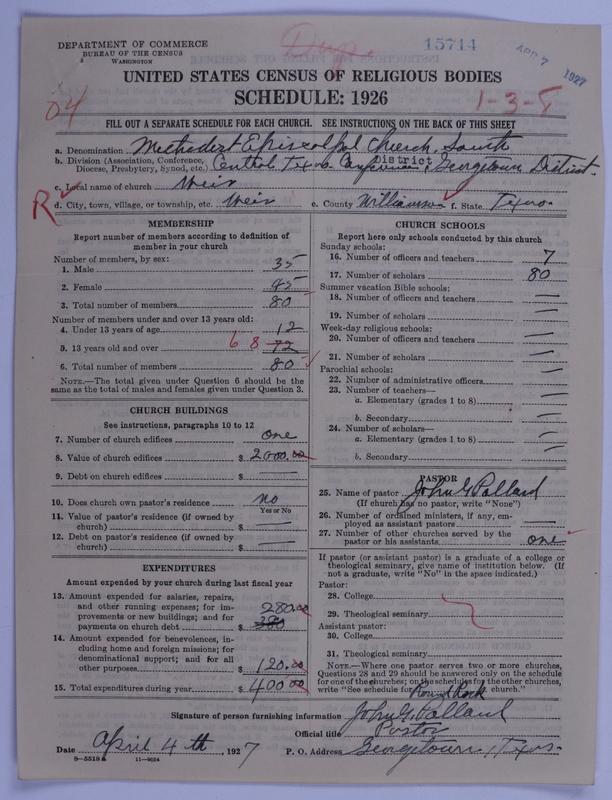 DEPARTMENT OF COMMERCE
BUREAU OF THE CENSUS
WASHINGTON
Dup.
15714
APR 7 1927
UNITED STATES CENSUS OF RELIGIOUS BODIES
SCHEDULE: 1926
04
1-3-5
FILL OUT A SEPARATE SCHEDULE FOR EACH CHURCH. SEE INSTRUCTIONS ON THE BACK OF THIS SHEET
a. Denomination Methodist Episcolpal Church, South
b. Division (Association, Conference, District
Diocese, Presbytery, Synod, etc.) Central Texas Conference, Georgetown District.
c. Local name of church Weir
R
d. City, town, village, or township, etc. Weir e. County Williamson f. State Texas.
MEMBERSHIP
Report number of members according to definition of
member in your church
Number of members, by sex:
1. Male 35
2. Female 45
3. Total number of members 80
Number of members under and over 13 years old:
4. Under 13 years of age 12
5. 13 years old and over 68 72
6. Total number of members 80
NOTE.—The total given under Question 6 should be
same as the total of males and females given under Question 3.
CHURCH BUILDINGS
See instructions, paragraphs 10 to 12
7. Number of church edifices one
8. Value of church edifices $ 2000.00
9. Debt on church edifices $ —
10. Does church own pastor's residence No
Yes or No
11. Value of pastor's residence (if owned by
church) $ —
12. Debt on pastor's residence (if owned by
church) $ —
EXPENDITURES
Amount expended by your church during last fiscal year
13. Amount expended for salaries, repairs,
and other running expenses; for im-
provements or new buildings; and for
payments on church debt $ 280.00
14. Amount expended for benevolences, in-
cluding home and foreign missions; for
denominational support; and for all
other purposes $ 120.00
15. Total expenditures during year $ 400.00
CHURCH SCHOOLS
Report here only schools conducted by this church
Sunday schools:
16. Number of officers and teachers 7
17. Number of scholars 80
Summer vacation Bible schools:
18. Number of officers and teachers —
19. Number of scholars —
Week-day religious schools:
20. Number of officers and teachers —
21. Number of scholars —
Parochial schools:
22. Number of administrative officers —
23. Number of teachers—
a. Elementary (grades 1 to 8) —
b. Secondary —
24. Number of scholars—
a. Elementary (grades 1 to 8) —
b. Secondary —
PASTOR
25. Name of pastor John G Pollard
(If church has no pastor, write "None")
26. Number of ordained ministers, if any, em-
ployed as assistant pastors —
27. Number of other churches served by the
pastor or his assistants one
If pastor (or assistant pastor) is a graduate of a college or
theological seminary, give name of institution below. (If
not a graduate, write "No" in the space indicated.)
Pastor:
28. College
29. Theological seminary
Assistant pastor:
30. College
31. Theological seminary
NOTE.—Where one pastor serves two or more churches,
Questions 28 and 29 should be answered only on the schedule
for one of the churches; on the schedules for the other churches,
write "See schedule for Round Rock church."
Signature of person furnishing information John G. Pollard
Official title Pastor
Date April 4th, 1927 P. O. Address Georgetown, Texas.
8-5518a 11-9054